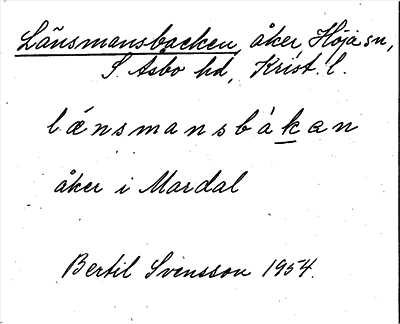 Länsmansbacken, åker, Höja sn,
S Åsbo hd, Krist. l.
länsmansbàkan
åker i Mardal
Bertil Svensson 1954.